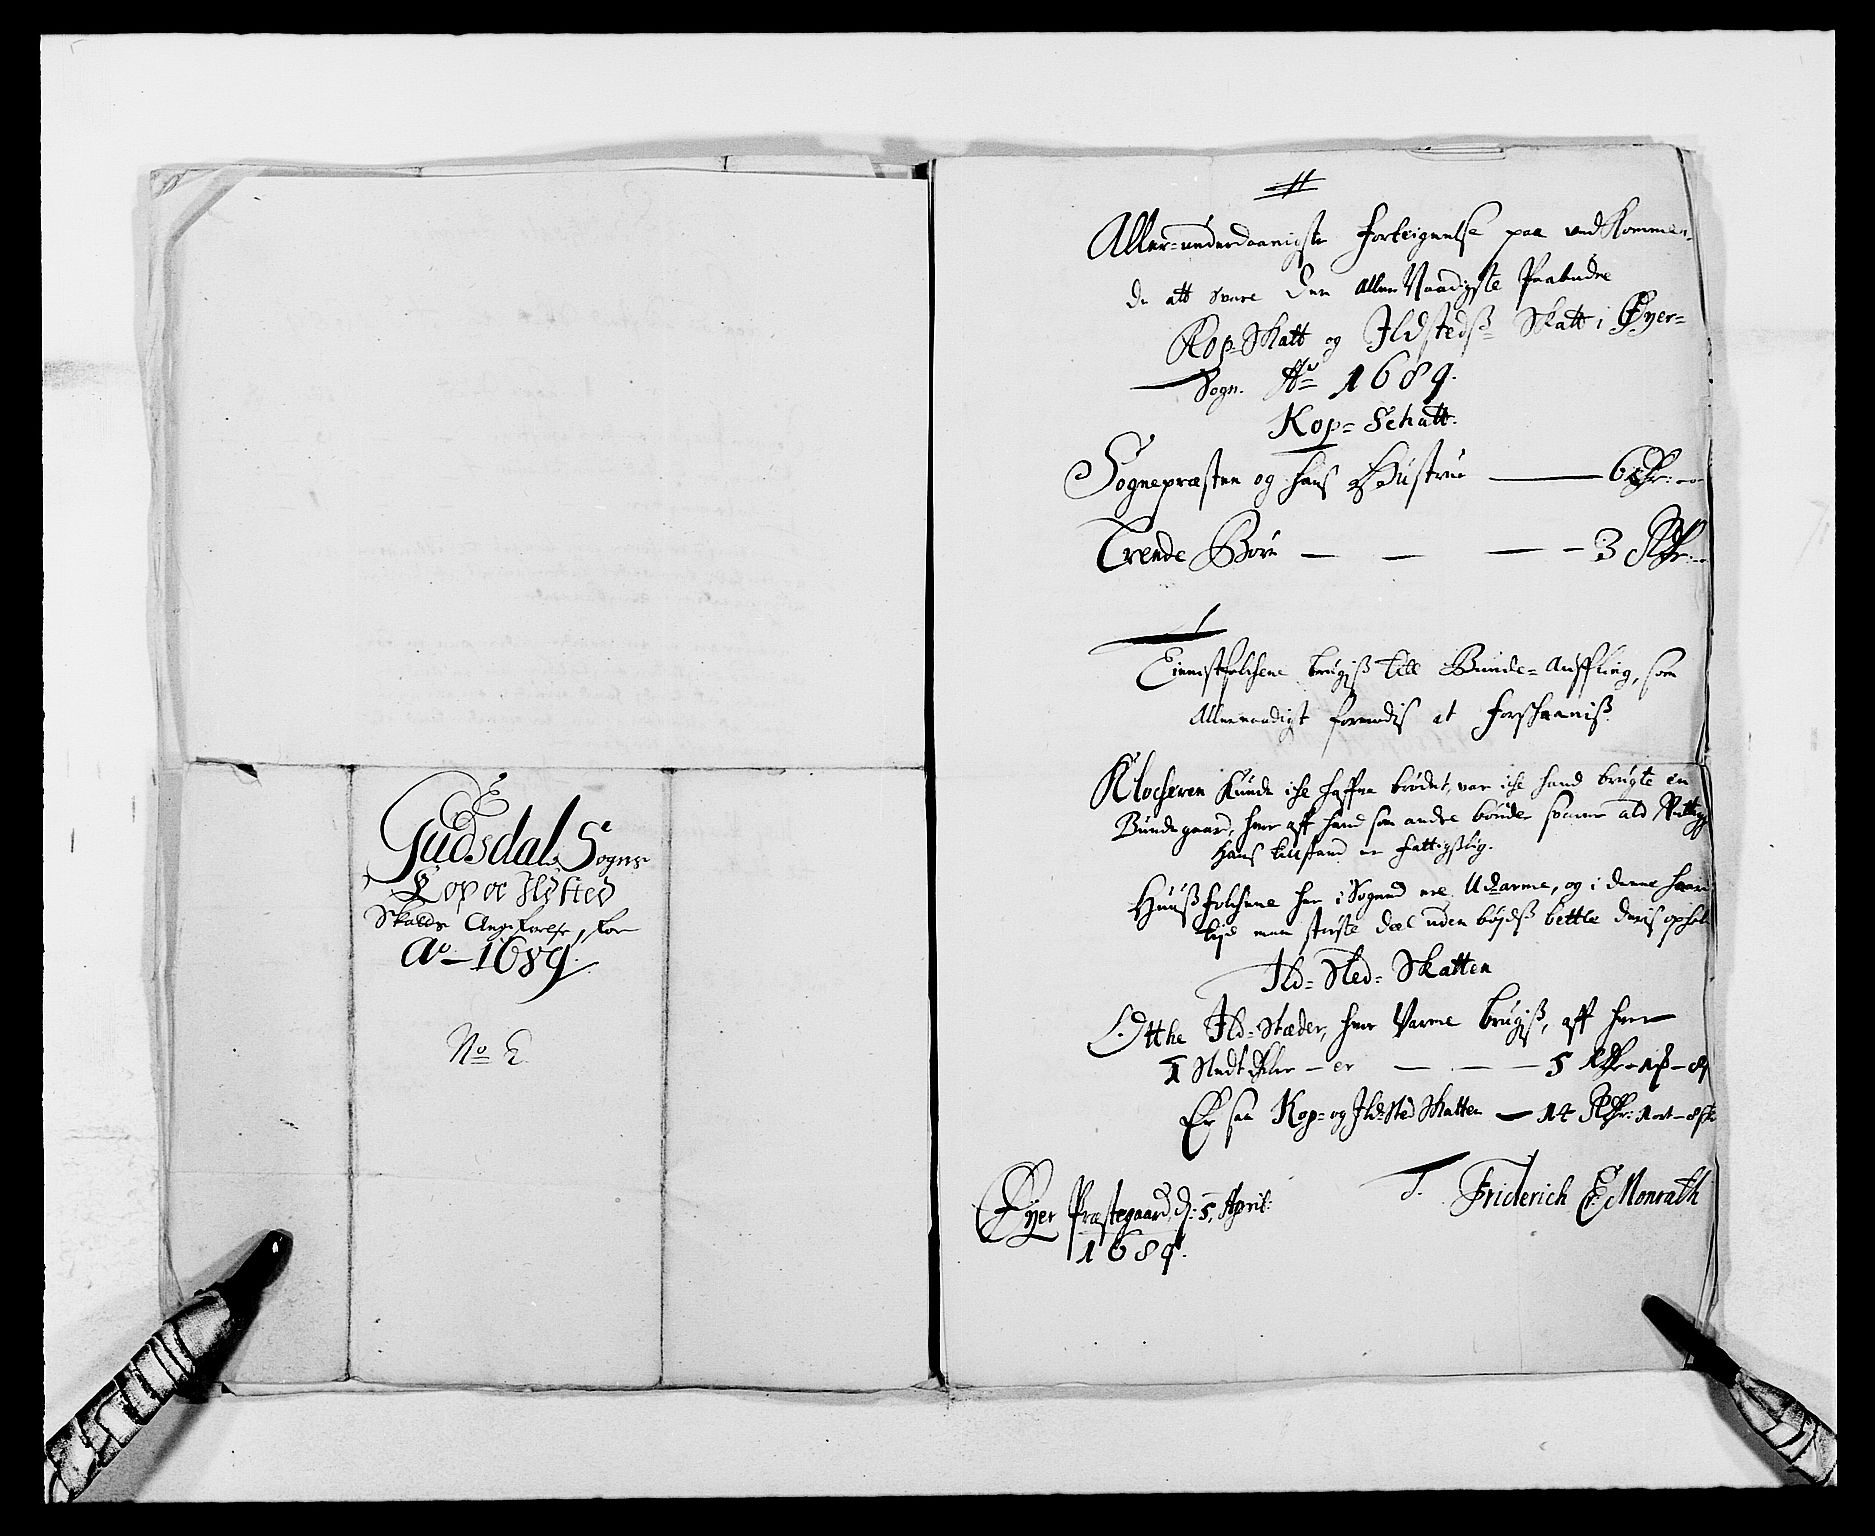 Gudsdals Sogns
Kop oc Ildsted
Skatts Angifvelse, for
Ao 1689.
No E
Aller-underdaanigste Forteignelse paa vedkommen-
de att svare Den Aller Naadigste Paabudne
Kop-Skatt og Ildsteds-Skatt i Øyer-
Sogn. Ao 1689.
Kop-Schatt.
Sognepræsten og hans Hustrue 6 Rdr:
Trende Børn 3 Rdr:
brugis till Bunde- som
Allernaadigst formodis at forschaanis
Klocheren Kunde iche haffve brødet, var iche hand brugte en
Bundegaard, hvor aff hand som andre bønder svarer ald
Hans tilstand er fattigslig.
Huusfolchene her i Sognet ere Udarme, og i denne haarde
tijd men største deel uden bøjds bettle deris ophold
Ild-Sted-Skatten
Otthe Ild-Stæder, hvor Varme brugis, aff hver
1 Slet Daler er 5 Rdr
Er saa Kop- og Ild-Sted Skatten 14 Rdr: 1 ort 8 sk
Øyer Præstegaard, d: 5, April:
1689.
Friderich E Monrath